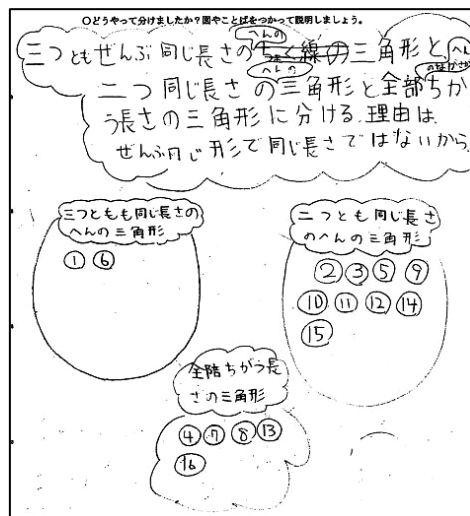 ○どうやって分けましたか?図やことばをつかって説明しましょう。
三つともぜんぶ同じ長さのへんの三角形と、へんの
二つ同じ長さの三角形と全部ちが
う長さの三角形に分ける。理由は、
ぜんぶ同じ形で同じ長さではないから。
三つともも同じ長さの
へんの三角形
① ⑥
二つとも同じ長さ
のへんの三角形
② ③ ⑤ ⑨
⑩ ⑪ ⑫ ⑭
⑮
全階ちがう長
さの三角形
④ ⑦ ⑧ ⑬
⑯